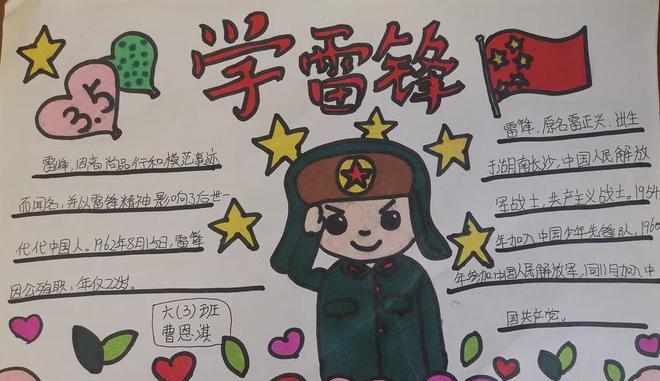 学雷锋
3.5
雷锋，因高尚品行和模范事迹
而闻名，并以雷锋精神影响了后世一
代代中国人。1962年8月15日，雷锋
因公殉职，年仅22岁。
六(3)班
曹恩淇
雷锋，原名雷正兴，出生
于湖南长沙，中国人民解放
军战士，共产主义战士。1954
年加入中国少年先锋队，1960
年参加中国人民解放军，同11月加入中
国共产党。